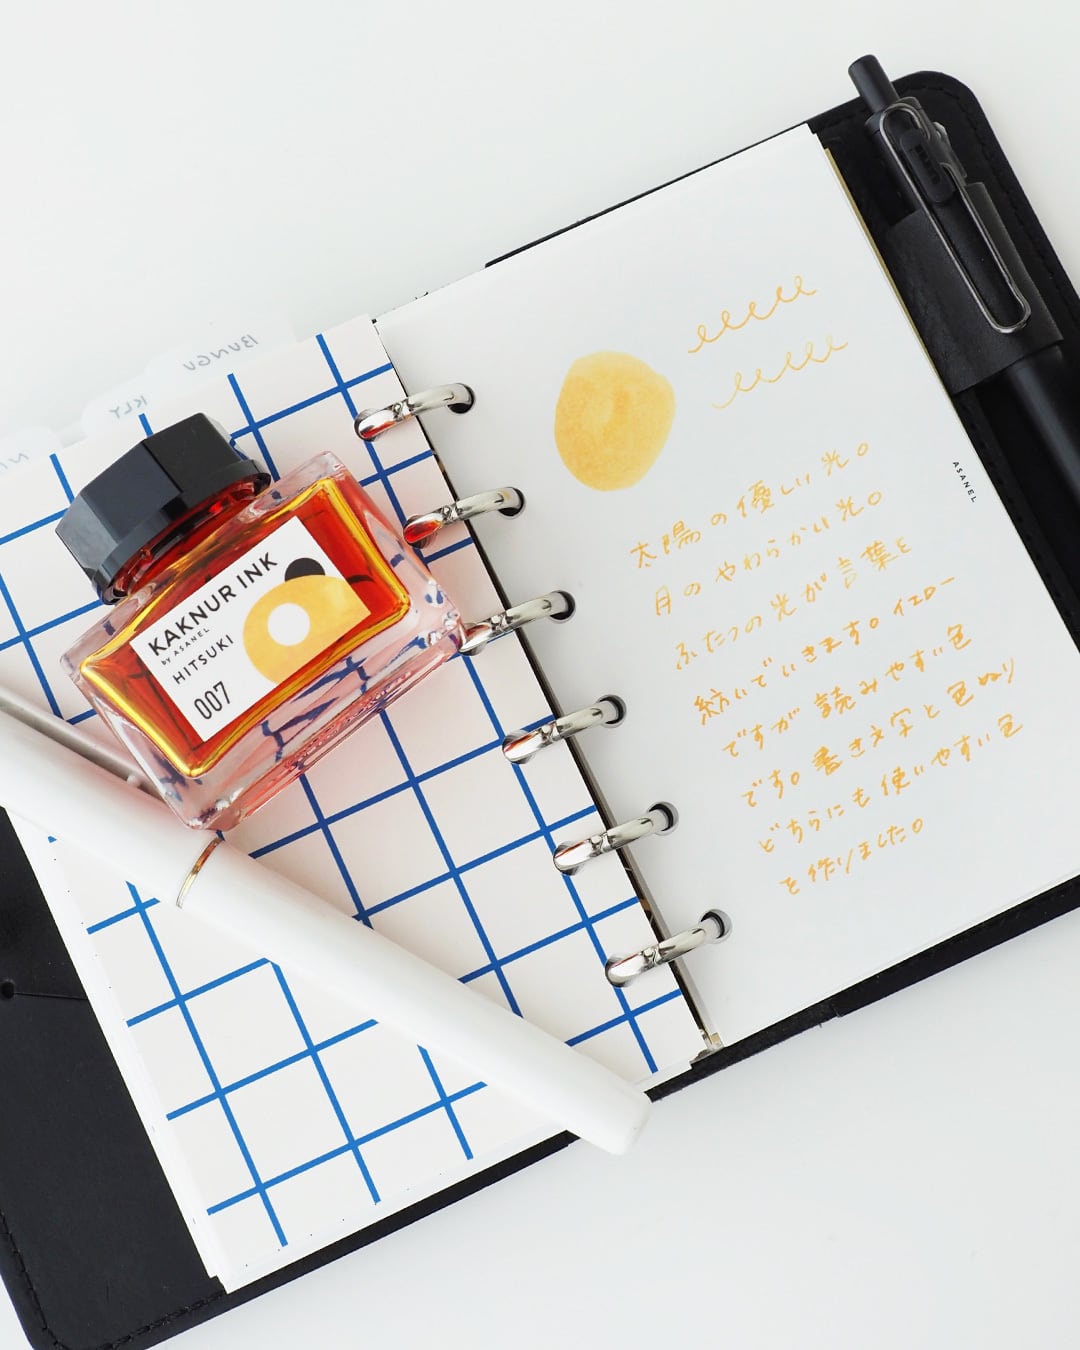 BUNGU
KLY
KAKNUR INK
by ASANEL
HITSUKI
007
太陽の優しい光。
月のやわらかい光。
ふたつの光が言葉を
紡いでいきます。イエロー
ですが読みやすい色
です。書き文字と色ぬり
どちらにも使いやすい色
を作りました。
ASANEL